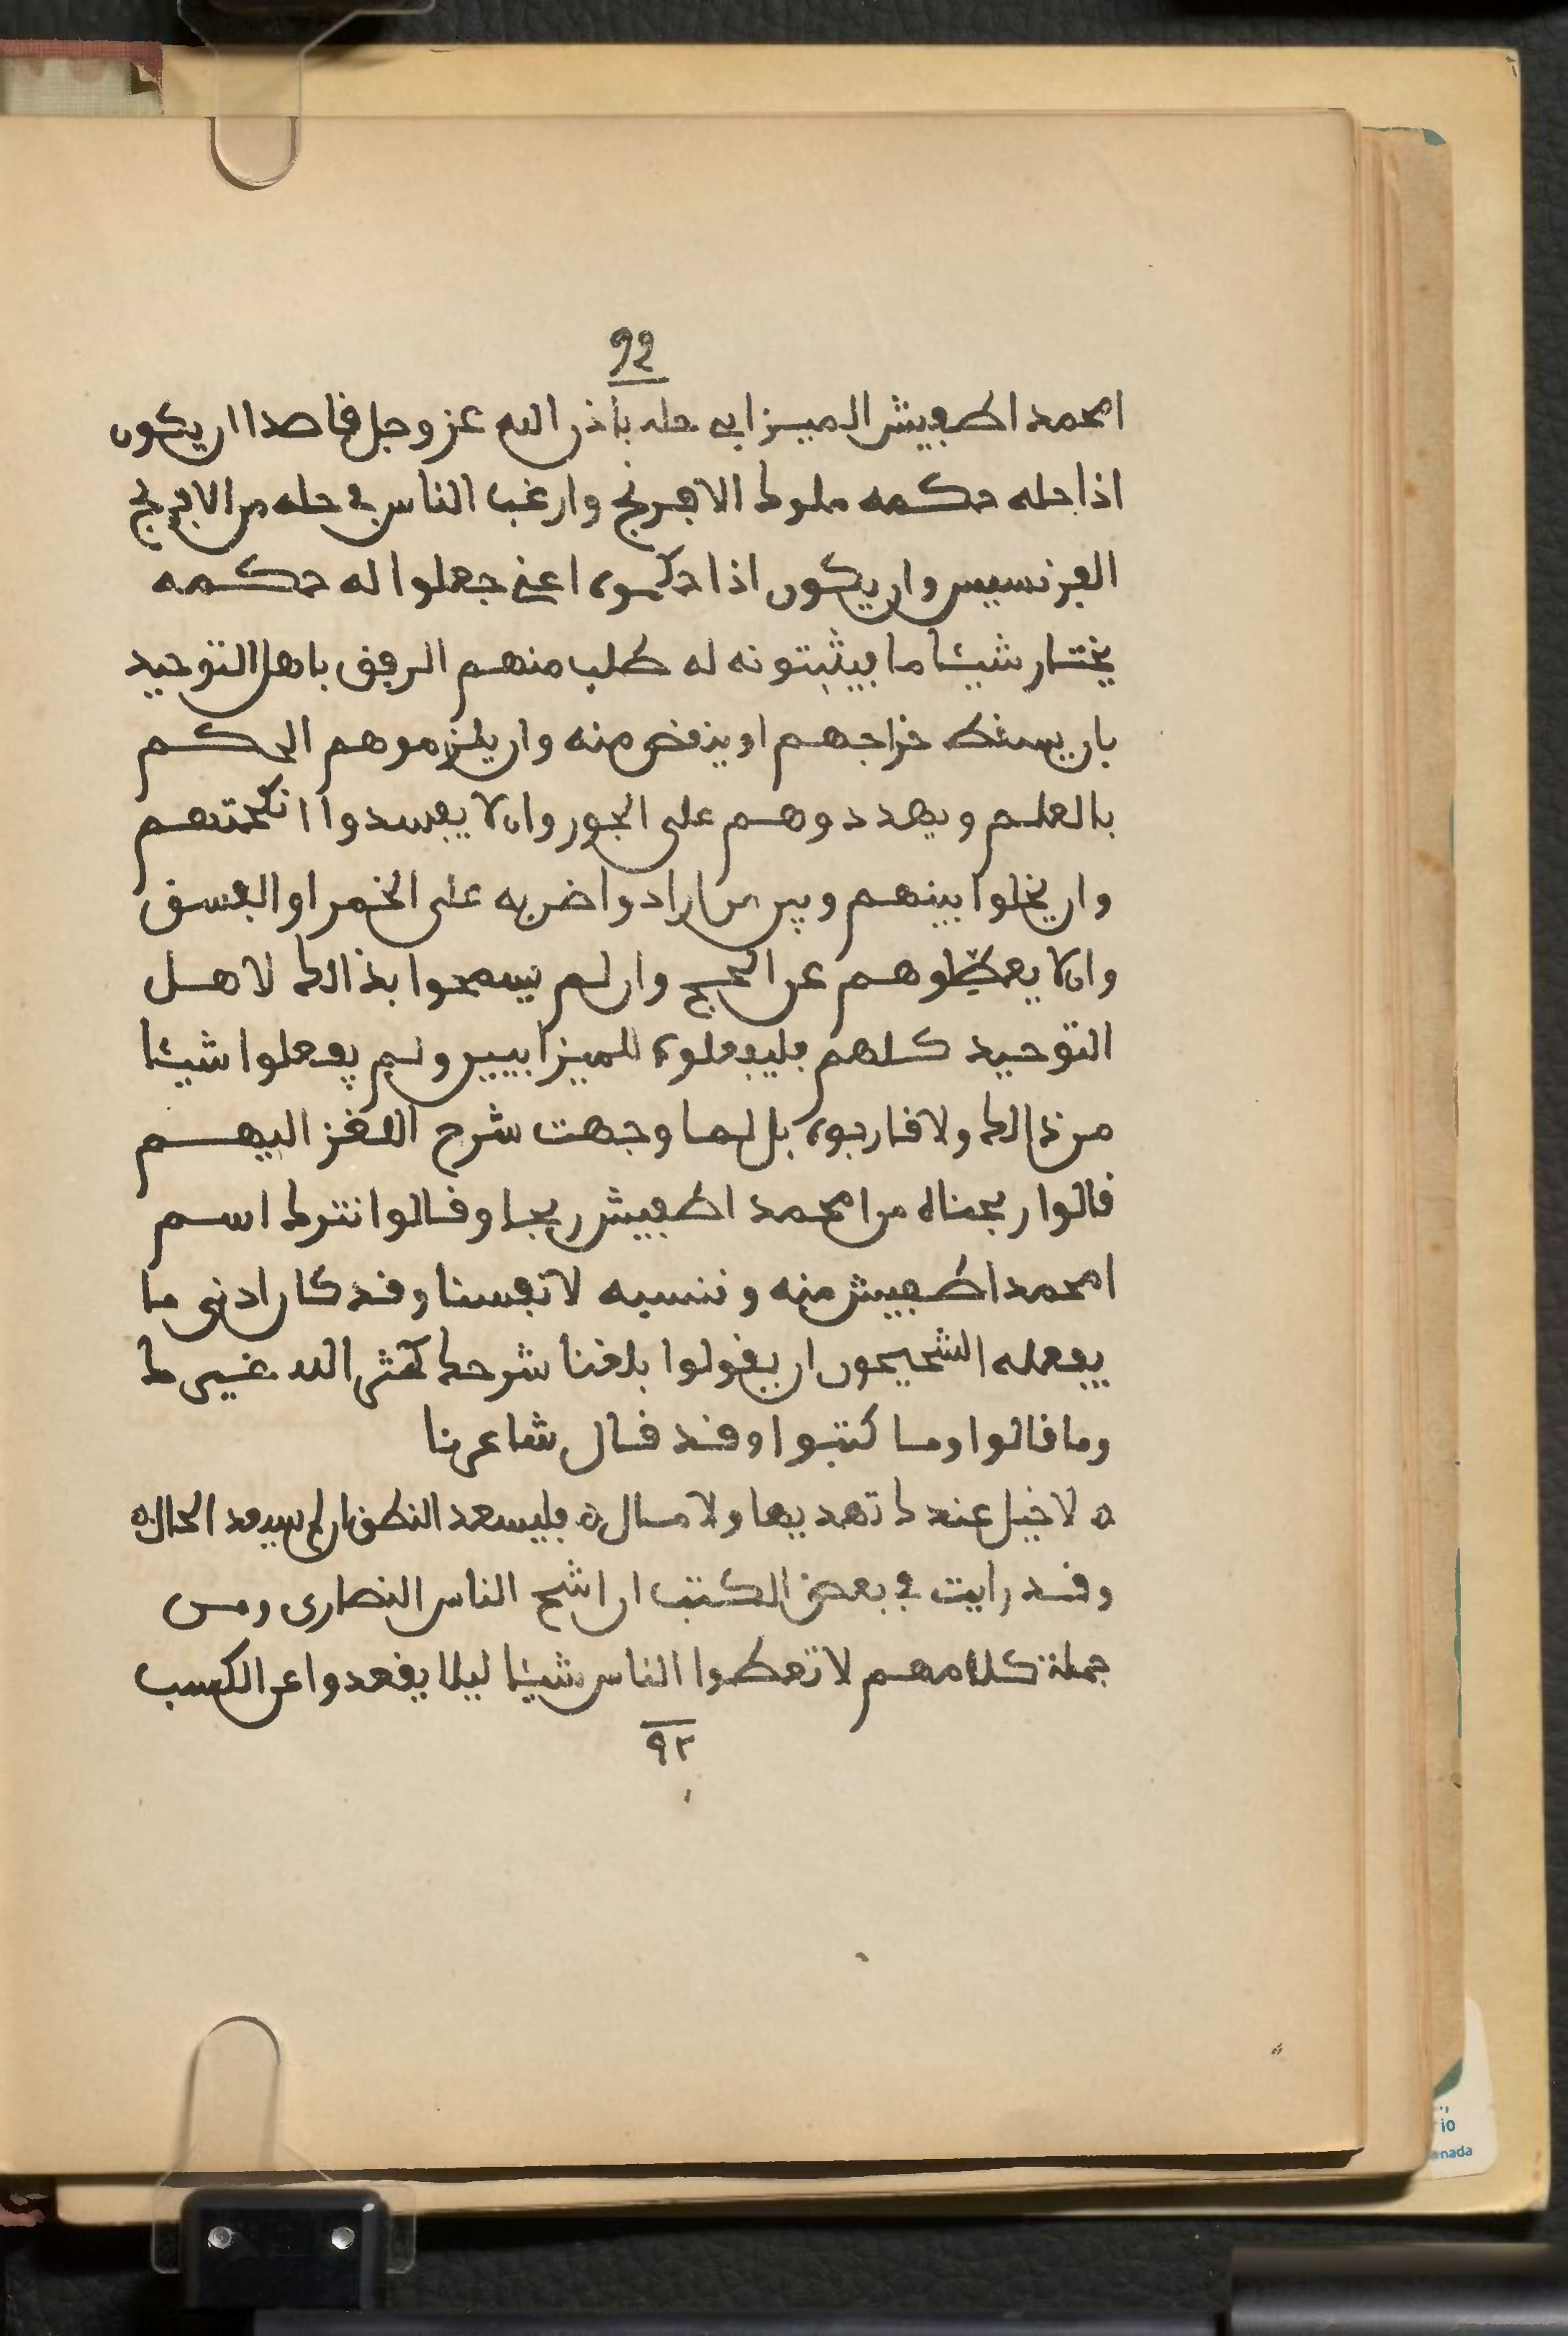 92
امحمد اطفيش الميزابي حله باذن الله عز وجل قاصدا ان يكون
اذا حله حكمه ملوك الافرنج وارغب الناس في حله من الافرنج
الفرنسيس وان يكون اذا حكموه اعني جعلوا له حكمه
يختار شيئا ما فيثبتونه له طلب منهم الرفق باهل التوحيد
بان يسقط خراجهم او ينقض منه وان يلزموهم الحكم
بالعلم ويهددوهم على الجور وان لا يفسدوا انكحتهم
وان يخلوا بينهم وبين من ارادوا ضربه على الخمر او الفسق
وان لا يعطلوهم عن الحج وان لم يسمحوا بذالك لاهل
التوحيد كلهم فليفعلوه للميزابيين ولم يفعلوا شيئا
من ذالك ولا قاربوه بل لما وجهت شرح اللغز اليهم
قالوا ربحناه من امحمد اطفيش ربحا وقالوا نترك اسم
امحمد اطفيش منه وننسبه لانفسنا وقد كان ادنى ما
يفعله الشحيحون ان يقولوا بلغنا شرحك كثر الله خيرك
وما قالوا وما كتبوا وقد قال شاعرنا
ه لا خيل عندك تهديها ولا مال ه فليسعد النطق ان لم يسعد الحال ه
وقد رايت في بعض الكتب ان اشح الناس النصارى ومن
جملة كلامهم لا تعطوا الناس شيئا ليلا يقعدوا عن الكسب
٩٢